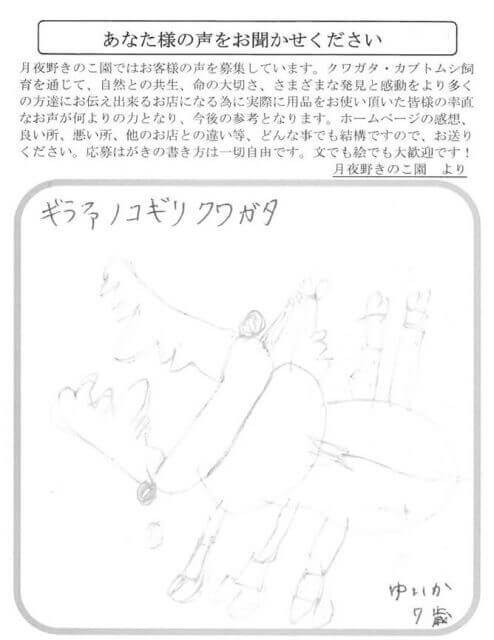 あなた様の声をお聞かせください
月夜野きのこ園ではお客様の声を募集しています。クワガタ・カブトムシ飼
育を通じて、自然との共生、命の大切さ、さまざまな発見と感動をより多く
の方達にお伝え出来るお店になる為に実際に用品をお使い頂いた皆様の率直
なお声が何よりの力となり、今後の参考となります。ホームページの感想、
良い所、悪い所、他のお店との違い等、どんな事でも結構ですので、お送り
ください。応募はがきの書き方は一切自由です。文でも絵でも大歓迎です！
月夜野きのこ園　より
ギラファノコギリクワガタ
ゆいか
7歳